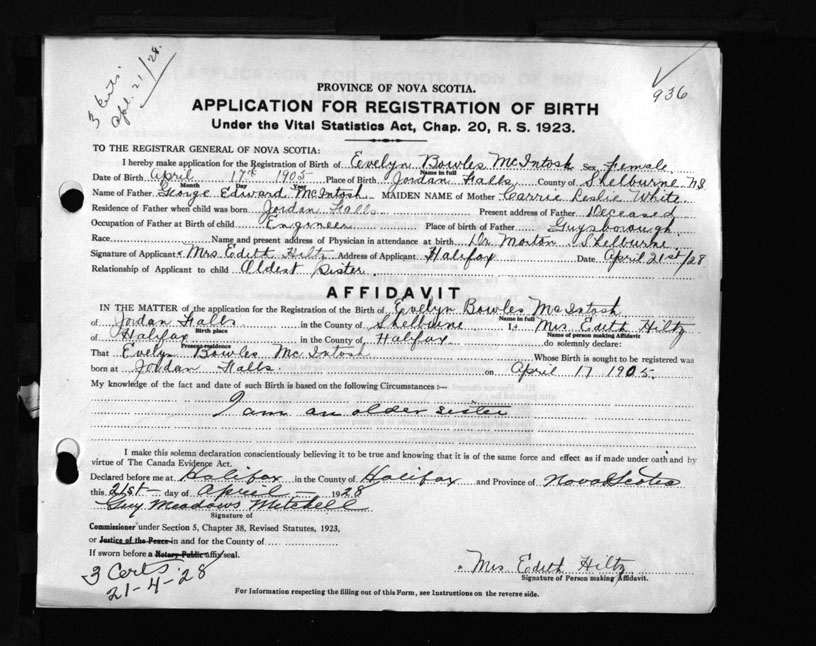 3 Certs.
Apl. 21/28.
936
PROVINCE OF NOVA SCOTIA.
APPLICATION FOR REGISTRATION OF BIRTH
Under the Vital Statistics Act, Chap. 20, R. S. 1923.
TO THE REGISTRAR GENERAL OF NOVA SCOTIA:
I hereby make application for the Registration of Birth of Evelyn Bowles McIntosh Sex Female
Name in full
Date of Birth April 17th 1905 Place of Birth Jordan Falls County of Shelburne N.S.
Month Day Year
Name of Father George Edward McIntosh MAIDEN NAME of Mother Carrie Leslie White
Residence of Father when child was born Jordan Falls Present address of Father Deceased
Occupation of Father at Birth of child Engineer Place of birth of Father Guysborough
Race Name and present address of Physician in attendance at birth Dr. Morton Shelburne
Signature of Applicant Mrs Edith Hiltz Address of Applicant Halifax Date April 21st/28
Relationship of Applicant to child Aldest Sister.
AFFIDAVIT
IN THE MATTER of the application for the Registration of the Birth of Evelyn Bowles McIntosh
Name in full
of Jordan Falls in the County of Shelburne I, Mrs. Edith Hiltz
Birth place Name of person making Affidavit
of Halifax in the County of Halifax do solemnly declare:
Present residence
That Evelyn Bowles McIntosh Whose Birth is sought to be registered was
born at Jordan Falls. on April 17 1905.
My knowledge of the fact and date of such Birth is based on the following Circumstances :—
I am an older sister
I make this solema declaration conscientiously believing it to be true and knowing that it is of the same force and effect as if made under oath and by
virtue of The Canada Evidence Act.
Declared before me at Halifax in the County of Halifax and Province of Nova Scotia
this 21st day of April 1928
Guy Meadows Mitchell
Signature of
Commissioner under Section 5, Chapter 38, Revised Statutes, 1923,
or Justice of the Peace in and for the County of
If sworn before a Notary Public affix seal.
3 Certs.
21-4-28
Mrs Edith Hiltz
Signature of Person making Affidavit.
For Information respecting the filling out of this Form, see Instructions on the reverse side.